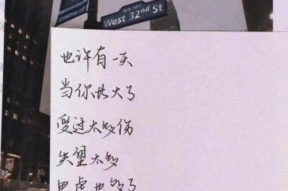 West 32nd St
也许有一天
当你长大了
受过太多伤
失望太多
虑也了